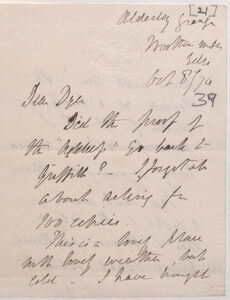 [21]
Alderley Grange
Wootton under
Edge
Oct 8/74
39
Dear Dyer
Did the proof of
the "Address" go back to
Griffith? I forgot
about asking for
100 copies.
This is a lovely place
with lovely weather, but
cold. I have brought